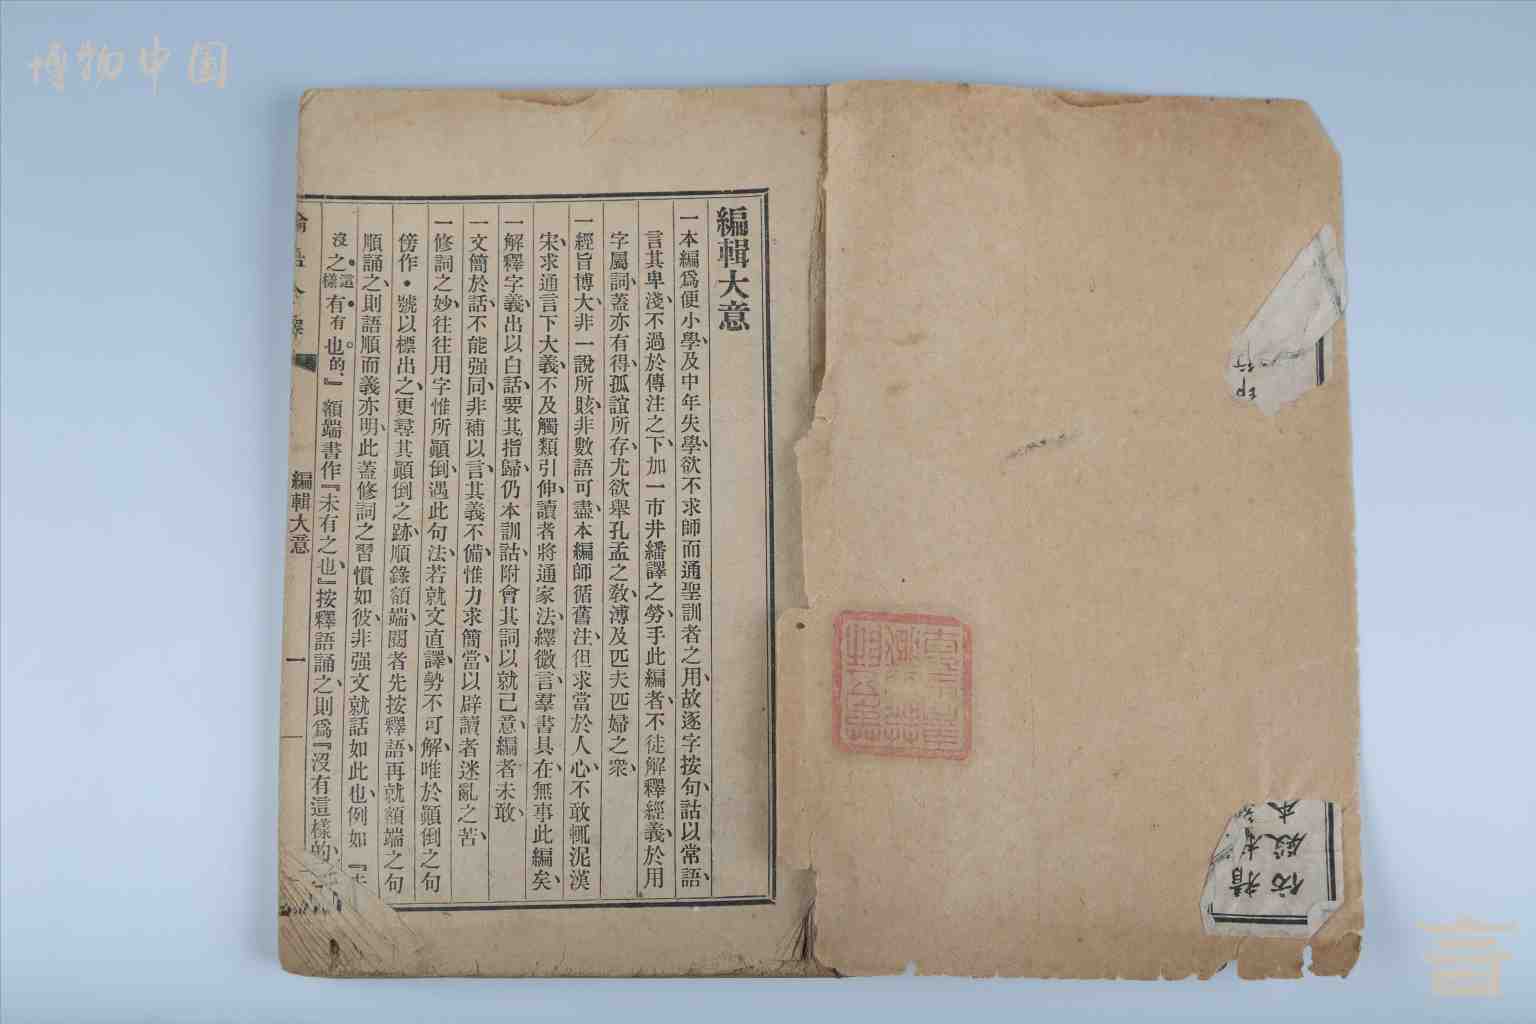 博物中国
編輯大意
一本編爲便小學、及中年失學、欲不求師而通聖訓者之用、故逐字按句、詁以常語、
言其卑淺、不過於傳注之下、加一市井繙譯之勞、手此編者、不徒解釋經義、於用
字屬詞、蓋亦有得、孤誼所存、尤欲舉孔孟之敎、溥及匹夫匹婦之衆、
一經旨博大、非一說所賅、非數語可盡、本編師循舊注、但求當於人心、不敢輒泥漢
宋、求通言下大義、不及觸類引伸、讀者將通家法、繹微言、羣書具在、無事此編矣、
一解釋字義、出以白話、要其指歸、仍本訓詁、附會其詞、以就己意、編者未敢、
一文簡於話、不能强同、非補以言、其義不備、惟力求簡當、以辟讀者迷亂之苦、
一修詞之妙、往往用字惟所顚倒、遇此句法、若就文直譯、勢不可解、唯於顚倒之句
傍作•號以標出之、更尋其顚倒之跡、順錄額端、閱者先按釋語、再就額端之句
順誦之、則語順而義亦明、此蓋修詞之習慣如彼、非强文就話如此也、例如『未
沒之這樣有有也的。』額端書作『未有之也、』按釋語誦之、則爲『沒有這樣的、
編輯大意
一
印行
仿殿本
精